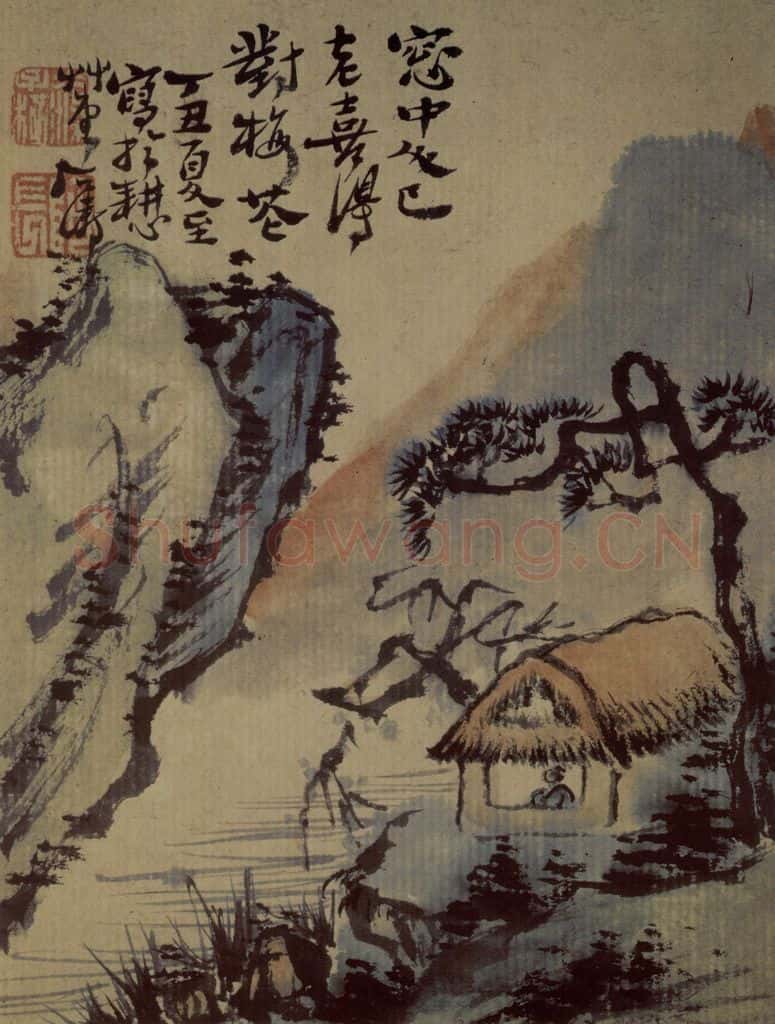 窓中人已
老喜得
對梅花
丁丑夏至
寫於耕心
艸堂石濤
Shufawang.CN